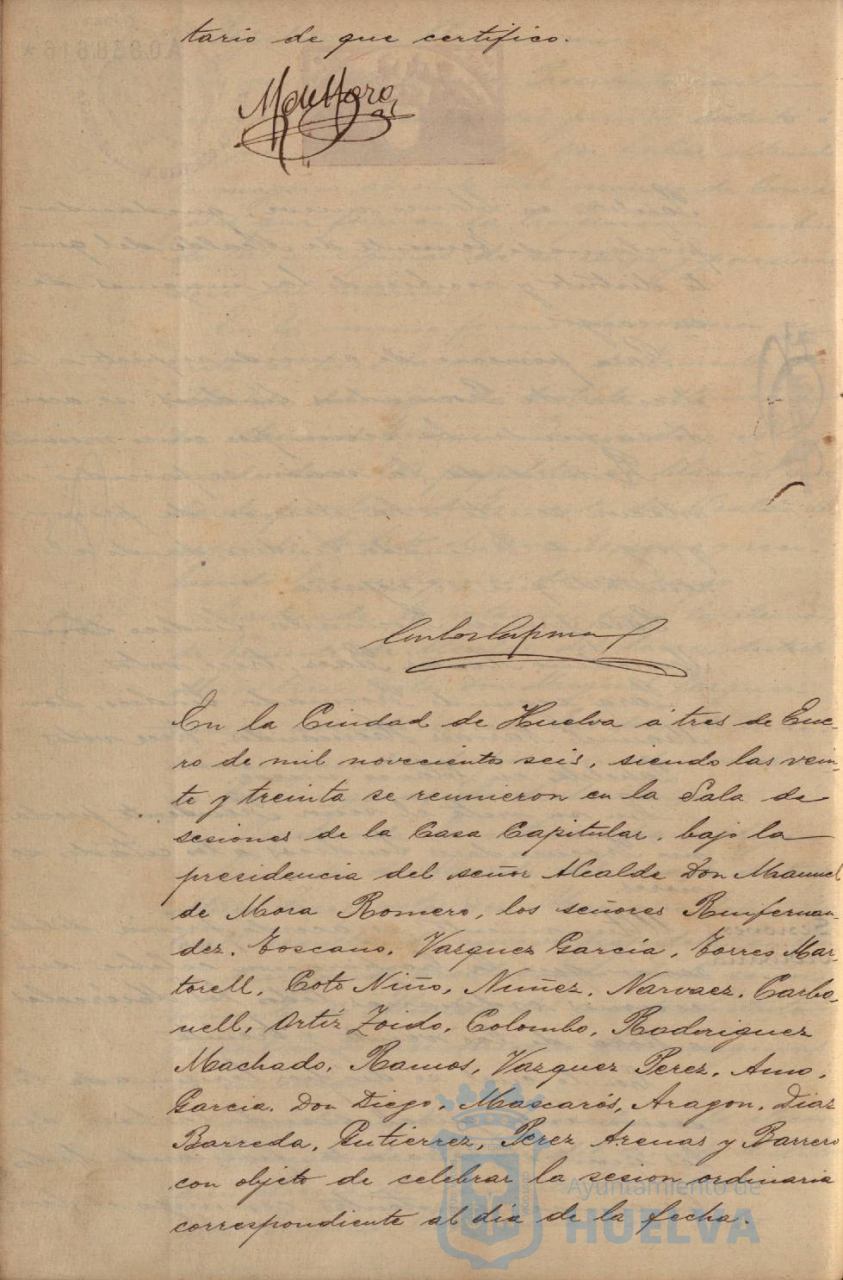 tario de que certifico.
M de Mora
Carlos
En la Ciudad de Huelva á tres de Ene-
ro de mil novecientos seis, siendo las vein-
te y treinta se reunieron en la Sala de
sesiones de la Casa Capitular, bajo la
presidencia del señor Alcalde Don Manuel
de Mora Romero, los señores Runfernan-
dez, Toscano, Vazquez García, Torres Mar-
torell, Coto Niño, Nuñez, Narvaez, Carbo-
nell, Ortíz Zoido, Colombo, Rodriguez
Machado, Ramos, Vazquez Perez, Amo,
Garcia, Don Diego, Mascarós, Aragon, Diaz
Barreda, Gutierrez, Perez Arenas y Barrero
con objeto de celebrar la sesion ordinaria
correspondiente al dia de la fecha.
Ayuntamiento de
HUELVA